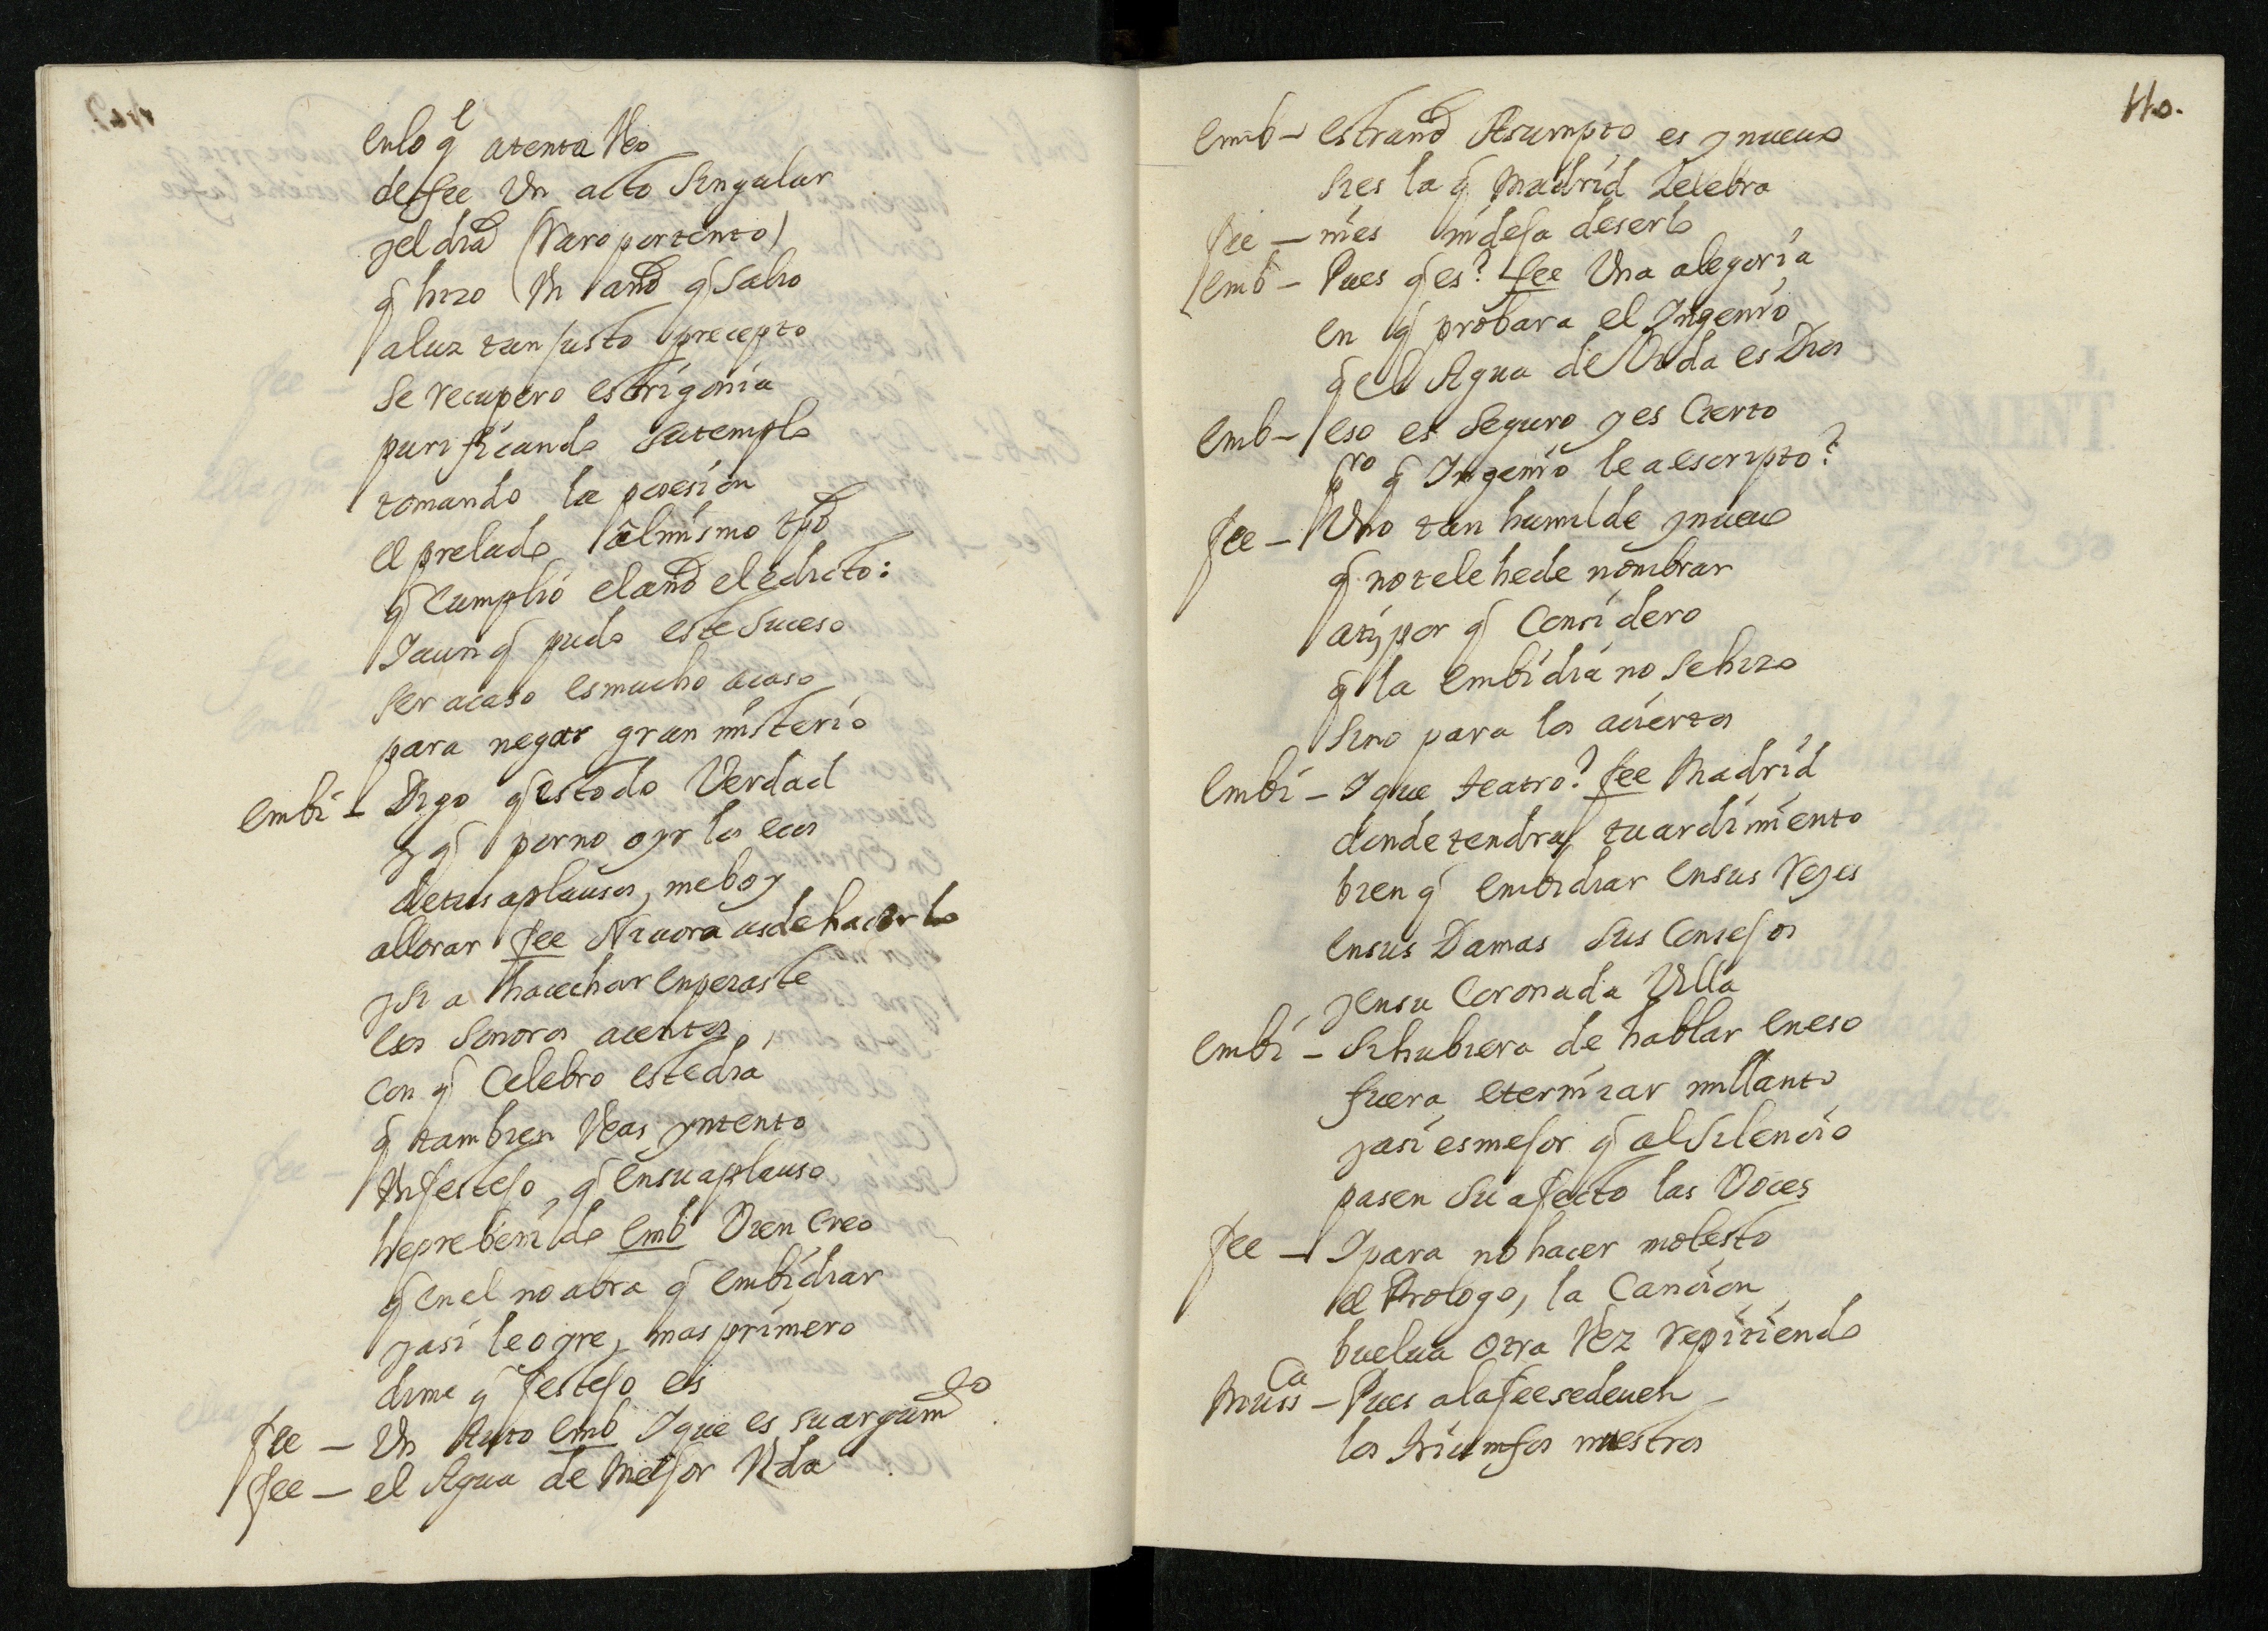 enlo q̃ atenta Veo
defee Un acto Singular
yel dia (Raro portento)
q̃ hizo Un año q̃ Salio
aluz tan justo precepto
Se recupero estrigonia
purificando Sutemplo
tomando la posesion
el prelado almismo tpo
q̃ Cumplió elaño el edicto:
Iaunq̃ pudo este Suceso
Ser acaso esmucho acaso
para negar gran misterio
embi - Digo q̃ estodo Verdad
yq̃ porno oyr los ecos
detus aplausos, meboy
allorar fee Niaora asdehacerlo
ysi a hacechar enpezaste
los Sonoros acentos,
con q̃ Celebro estedia
q̃ tambien Veas yntento
Unfestejo q̃ ensuaplauso
heprebenido emb Bien Creo
q̃ enel no abra q̃ embidiar
yasi leoyre, mas primero
dime q̃ festejo es
fee - Un Auto emb Ique es suargumto
fee - el Agua de Mejor Vida
110.
emb - estraño Asumpto es ynueuo
Sies la q̃ Madrid Zelebra
fee - nies nideja deserlo
emb - Pues q̃ es? fee Una alegoria
en q̃ probara el Ingenio
q̃ el Agua de Vida es Dios
emb - eso es Seguro yes Cierto
pro q̃ Ingenio le aescripto?
fee - Uno tan humilde ynueuo
q̃ notele hede nombrar
atiypor q̃ Considero
q̃ la embidia no Sehizo
Sino para los aciertos
embi - Ique teatro? fee Madrid
dondetendra tuardimiento
bien q̃ embidiar ensus Reyes
ensus Damas Sus Consejos
yensu Coronada Villa
embi - Sihubiera de hablar eneso
fuera eternizar millanto
yasi esmejor q̃ alSilencio
pasen Su afecto las Voces
fee - Ipara no hacer molesto
el Prologo, la Cancion
buelua otra Vez repitiendo
Mussca - Pues alafeesedeuen
los triumfos nuestros